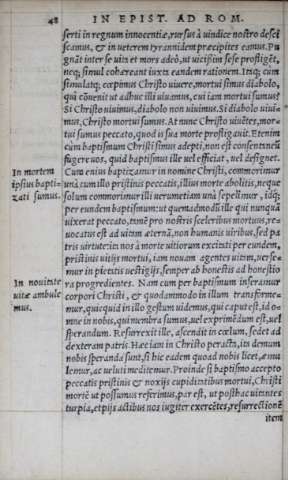 48 IN EPIST. AD ROM.
serti in regnum innocentiæ, rursus à uindice nostro desci
scamus, & in ueterem tyrannidem præcipites eamus. Pu
gnãt inter se uita et mors adeò, ut uicißim sese profligẽt,
neq; simul cohæreant iuxta eandem rationem. Itaq; cum
simulatq; cœpimus Christo uiuere, mortui simus diabolo,
qui cõuenit ut adhuc illi uiuamus, cui iam mortui sumus?
Si Christo uiuimus, diabolo non uiuimus. Si diabolo uiui=
mus, Christo mortui sumus. At nunc Christo uiuẽtes, mor=
tui sumus peccato, quod is sua morte profligauit. Etenim
cùm baptismum Christi simus adepti, non est consentaneũ
fugere uos, quid baptismus ille uel efficiat, uel designet.
In mortem Cum enim baptizamur in nomine Christi, commorimur
ipsius bapti= unà cum illo pristinis peccatis, illius morte abolitis, neque
zati sumus. solum commorimur illi uerumetiam unà sepelimur, idq;
per eundem baptismum: ut quemadmodũ ille qui nunquã
uixerat peccato, tamẽ pro nostris sceleribus mortuus, re=
uocatus est ad uitam æternã, non humanis uiribus, sed pa
tris uirtute: ita nos à morte uitiorum excitati per eundem,
pristinis uitijs mortui, iam nouam agentes uitam, uerse=
mur in pietatis uestigijs, semper ab honestis ad honestio
In nouitate ra progredientes. Nam cum per baptismum inseramur
uitæ ambule corpori Christi, & quodammodo in illum transforme=
mus. mur, quicquid in illo gestum uidemus, qui caput est, id o=
mne in nobis, qui membra sumus, uel exprimẽdum est, uel
sperandum. Resurrexit ille, ascendit in cœlum, sedet ad
dexteram patris. Hæc iam in Christo peracta, ita demum
nobis speranda sunt, si hic eadem quoad nobis licet, æmu
lemur, ac ueluti meditemur. Proinde si baptismo accepto
peccatis pristinis & noxijs cupiditatibus mortui, Christi
mortẽ ut possumus referimus, par est, ut posthac uitantes
turpia, et pijs actibus nos iugiter exercẽtes, resurrectionẽ
item